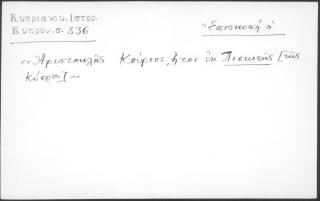 Κυπριανου. Ιστορ.
Κυπρου. σ. 336
Ἐπισκοπή ἡ
"Ἀριστοκλῆς Κούριος, ἤτοι ἐκ Πισκοπῆς [τῆς
Κύπρου]"